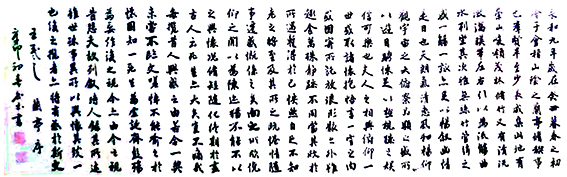 永和九年歲在癸丑暮春之初
會于會稽山陰之蘭亭脩稧事
也羣賢畢至少長咸集此地有
崇山峻領茂林脩竹又有清流
激湍暎帶左右引以為流觴曲
水列坐其次雖無絲竹管弦之
盛一觴一詠亦足以暢敘幽情
是日也天朗氣清惠風和暢仰
觀宇宙之大俯察品類之盛所
以遊目騁懷足以極視聽之娛
信可樂也夫人之相與俯仰一
世或取諸懷抱悟言一室之內
或因寄所託放浪形骸之外雖
趣舍萬殊靜躁不同當其欣於
所遇蹔得於己快然自足不知
老之將至及其所之既惓情隨
事遷感慨係之矣向之所欣俛
仰之閒以為陳迹猶不能不以
之興懷況脩短隨化終期於盡
古人云死生亦大矣豈不痛哉
每攬昔人興感之由若合一契
未嘗不臨文嗟悼不能喻之於
懷固知一死生為虛誕齊彭殤
為妄作後之視今亦由今之視
昔悲夫故列敘時人錄其所述
雖世殊事異所以興懷其致一
也後之攬者亦將有感於斯文
王羲之 蘭亭序
辛卯初春書